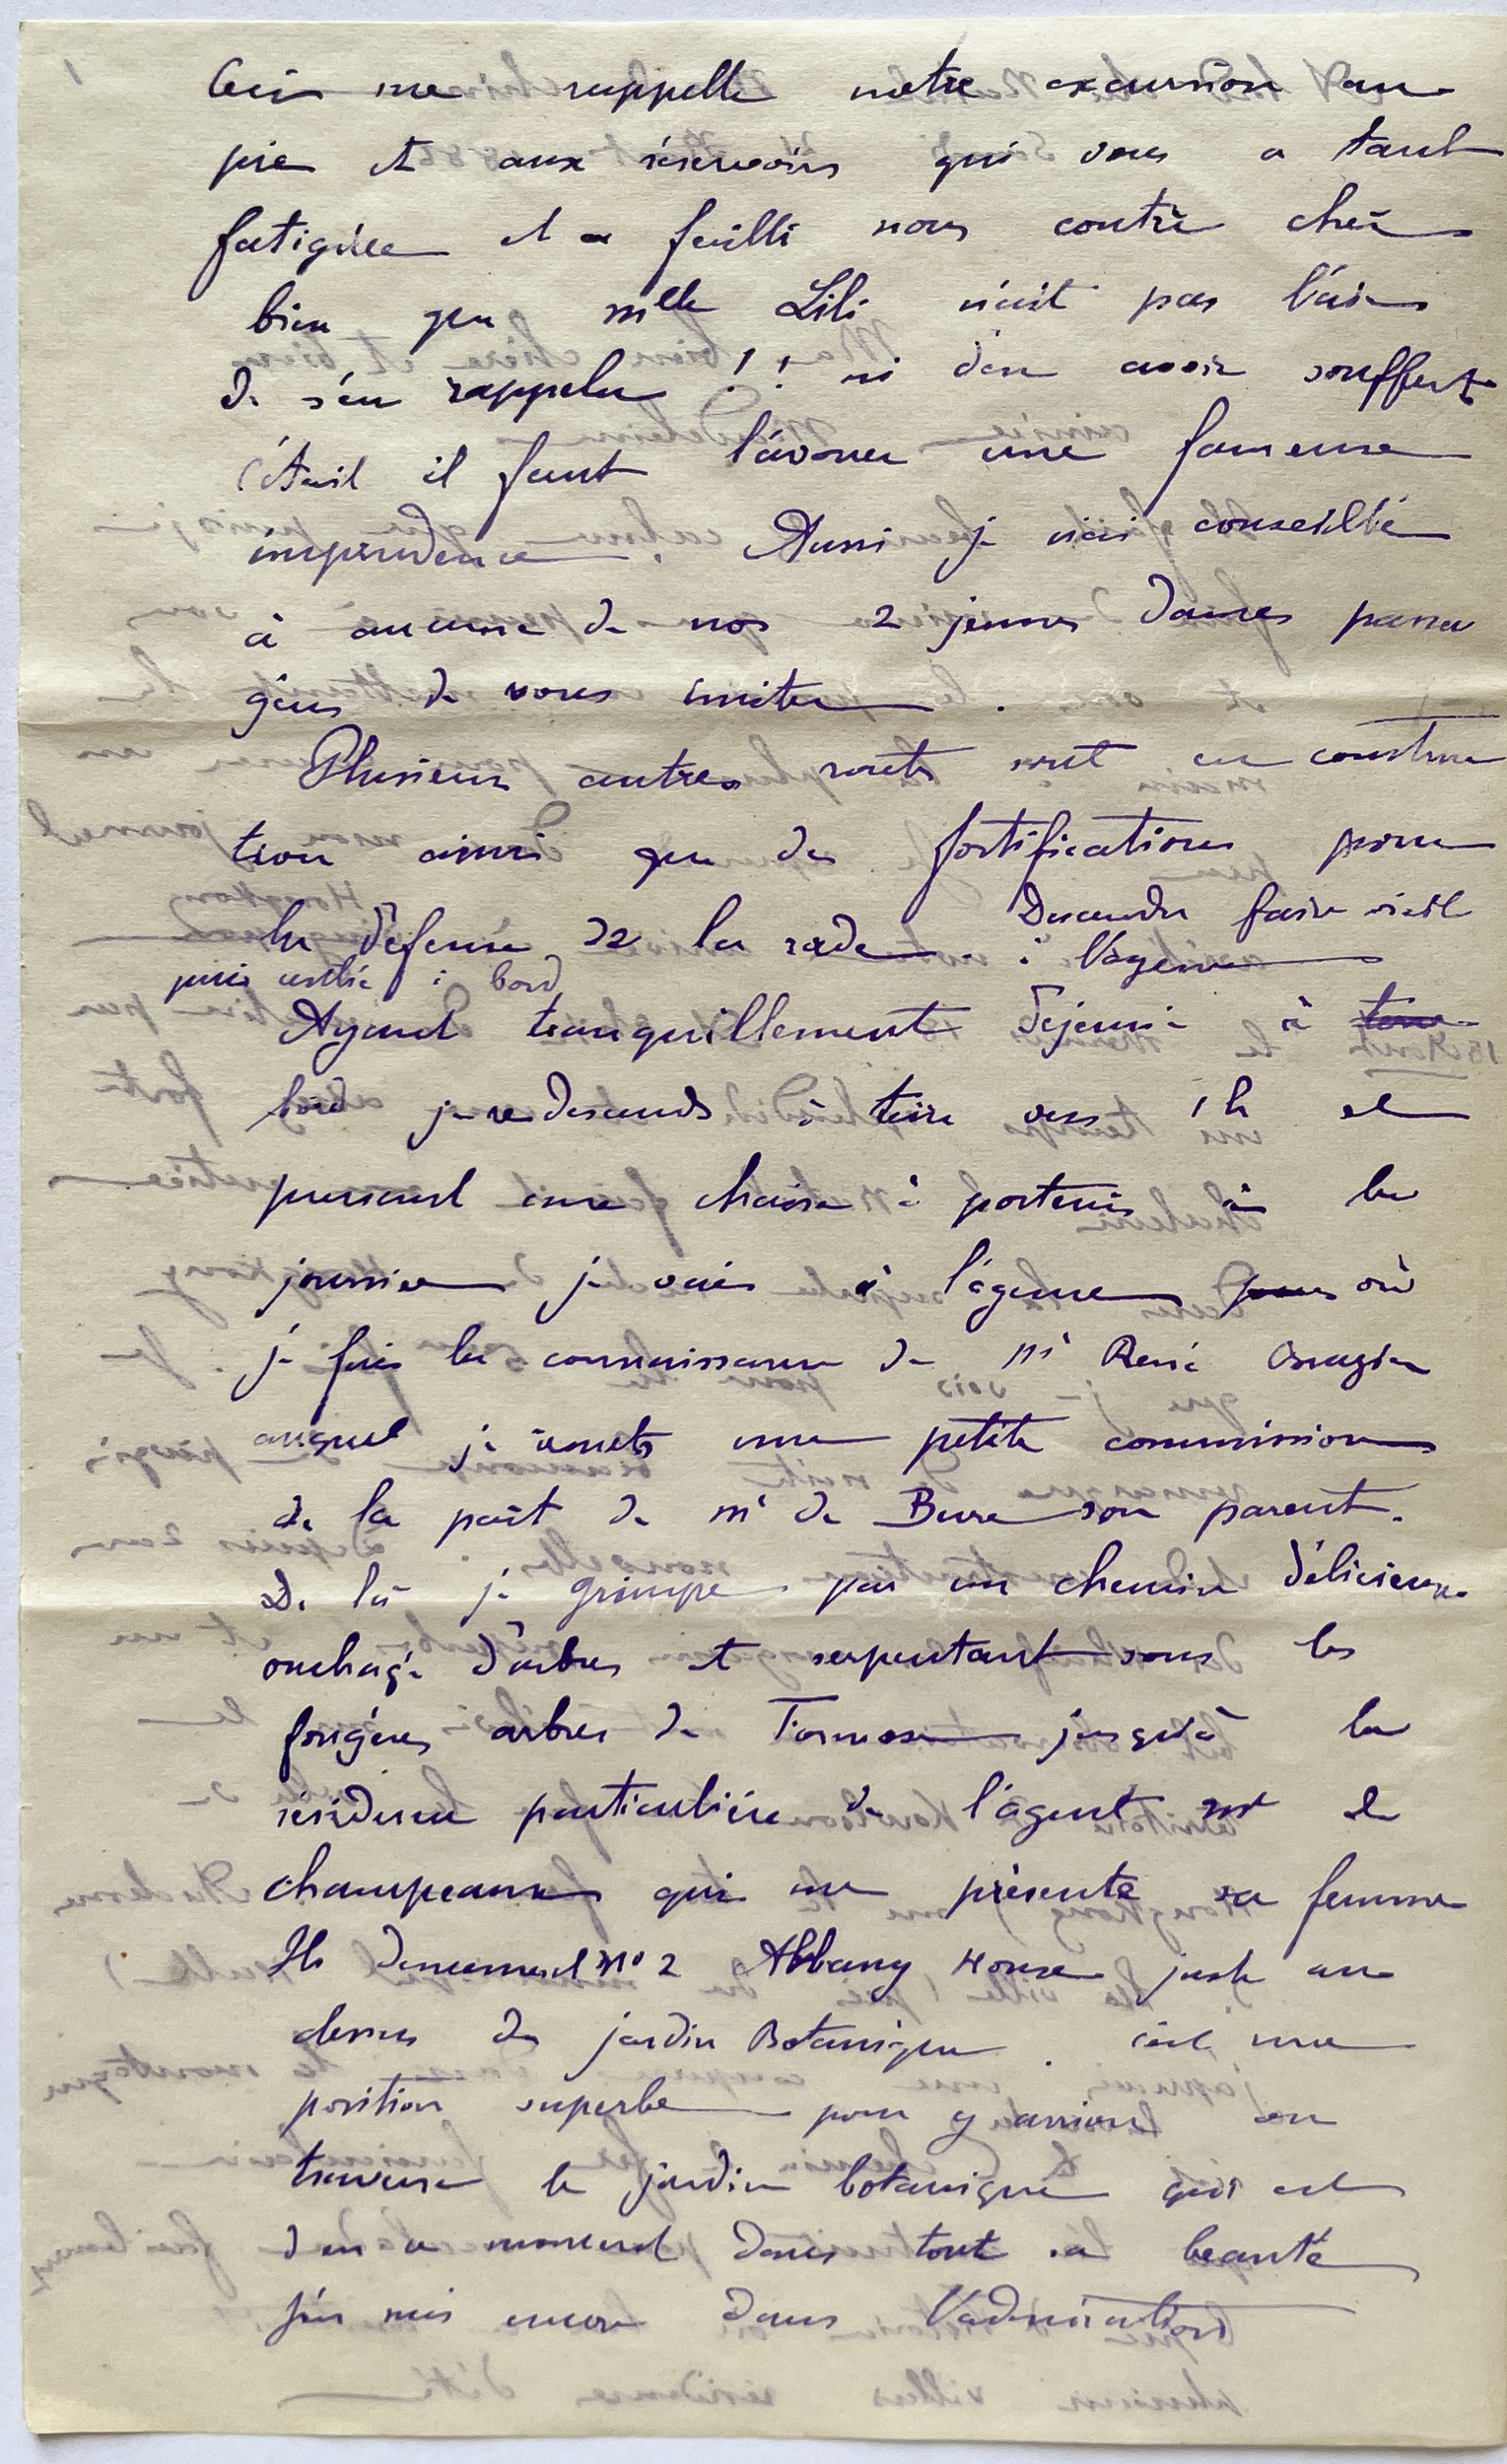 Ceci me rappelle notre excursion au
pic et aux réservoirs qui vous a tant
fatiguée et a failli nous coûter cher
bien que Mlle Lili n'ait pas l'air
de s'en rappeler !! ni d'en avoir souffert
C'était il faut l'avouer une fameuse
imprudence. Aussi je n'ai conseillé
à aucune de nos 2 jeunes dames passa
gères de vous imiter.
Plusieurs autres routes sont en construc
tion ainsi que des fortifications pour
la défense de la rade. Descendu faire visite
à l'agence
puis rentré à bord
Ayant tranquillement déjeuné à terre
bord je redescends à terre vers 1 h et
prenant une chaise à porteurs à la
journée je vais à l'agence pour où
je fais la connaissance de Mr René
auquel je remets une petite commission
de la part de Mr de Bure son parent.
De là je grimpe par un chemin délicieux
ombragé d'arbres et serpentant sous les
fougères arbres de Formose jusqu'à la
résidence particulière de l'agent Mr de
Champeaux qui me présente sa femme
Ils demeurent No 2 Albany House juste au
dessus du jardin Botanique. C'est une
position superbe pour y arriver on
traverse le jardin botanique qui est
en ce moment dans toute sa beauté
j'en suis encore dans l'admiration